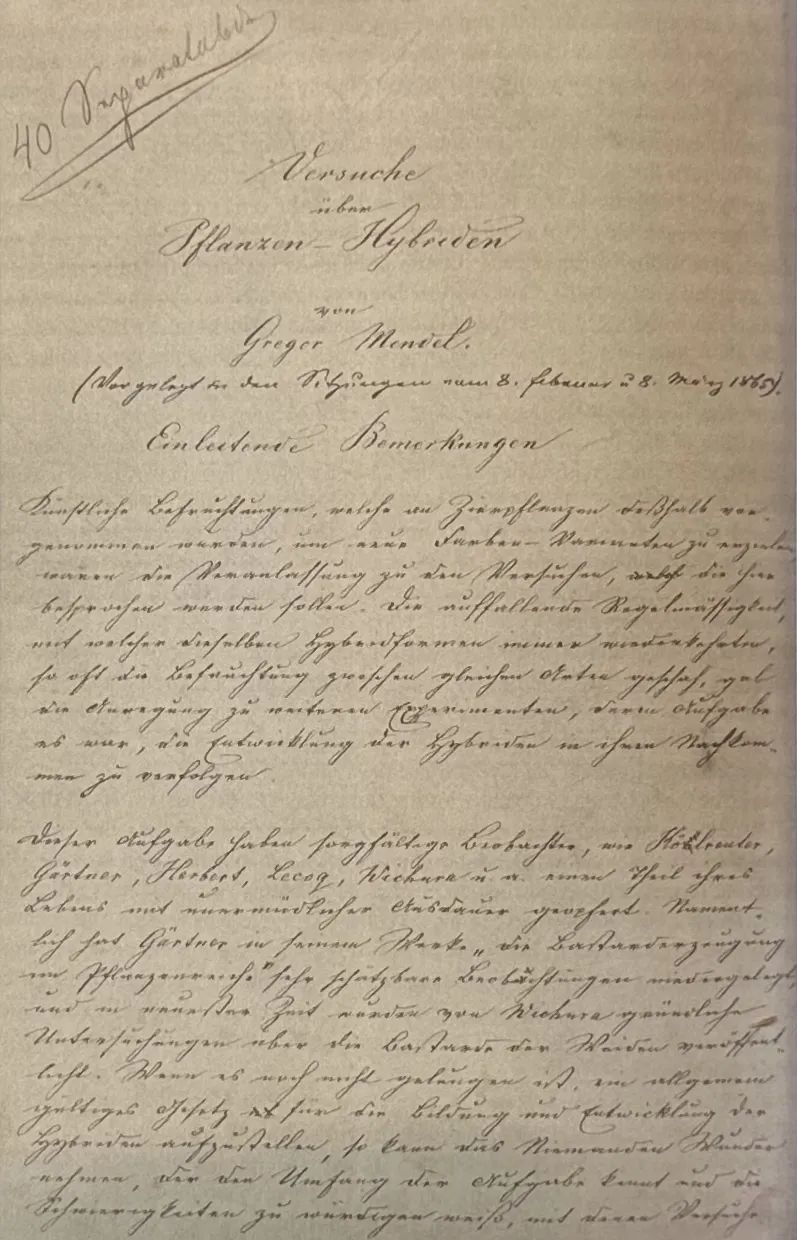 40 Separatabdr
Versuche
über
Pflanzen-Hybriden
von
Gregor Mendel.
(Vorgelegt in den Sitzungen vom 8. Februar u 8. März 1865).
Einleitende Bemerkungen
Künstliche Befruchtungen, welche an Zierpflanzen deßhalb vor-
genommen wurden, um neue Farben-Varianten zu erzielen,
waren die Veranlassung zu den Versuchen, die hier
besprochen werden sollen. Die auffallende Regelmässigkeit,
mit welcher dieselben Hybridformen immer wiederkehrten,
so oft die Befruchtung zwischen gleichen Arten geschah, gab
die Anregung zu weiteren Experimenten, deren Aufgabe
es war, die Entwicklung der Hybriden in ihren Nachkom-
men zu verfolgen.
Dieser Aufgabe haben sorgfältige Beobachter, wie Kölreuter,
Gärtner, Herbert, Lecoq, Wichura u. a. einen Theil ihres
Lebens mit unermüdlicher Ausdauer geopfert. Nament-
lich hat Gärtner in seinem Werke „die Bastarderzeugung
im Pflanzenreiche" sehr schätzbare Beobachtungen niedergelegt,
und in neuester Zeit wurden von Wichura gründliche
Untersuchungen über die Bastarde der Weiden veröffent-
licht. Wenn es noch nicht gelungen ist, ein allgemein
gültiges Gesetz für die Bildung und Entwicklung der
Hybriden aufzustellen, so kann das Niemanden Wunder
nehmen, der den Umfang der Aufgabe kennt und die
Schwierigkeiten zu würdigen weiß, mit denen Versuche